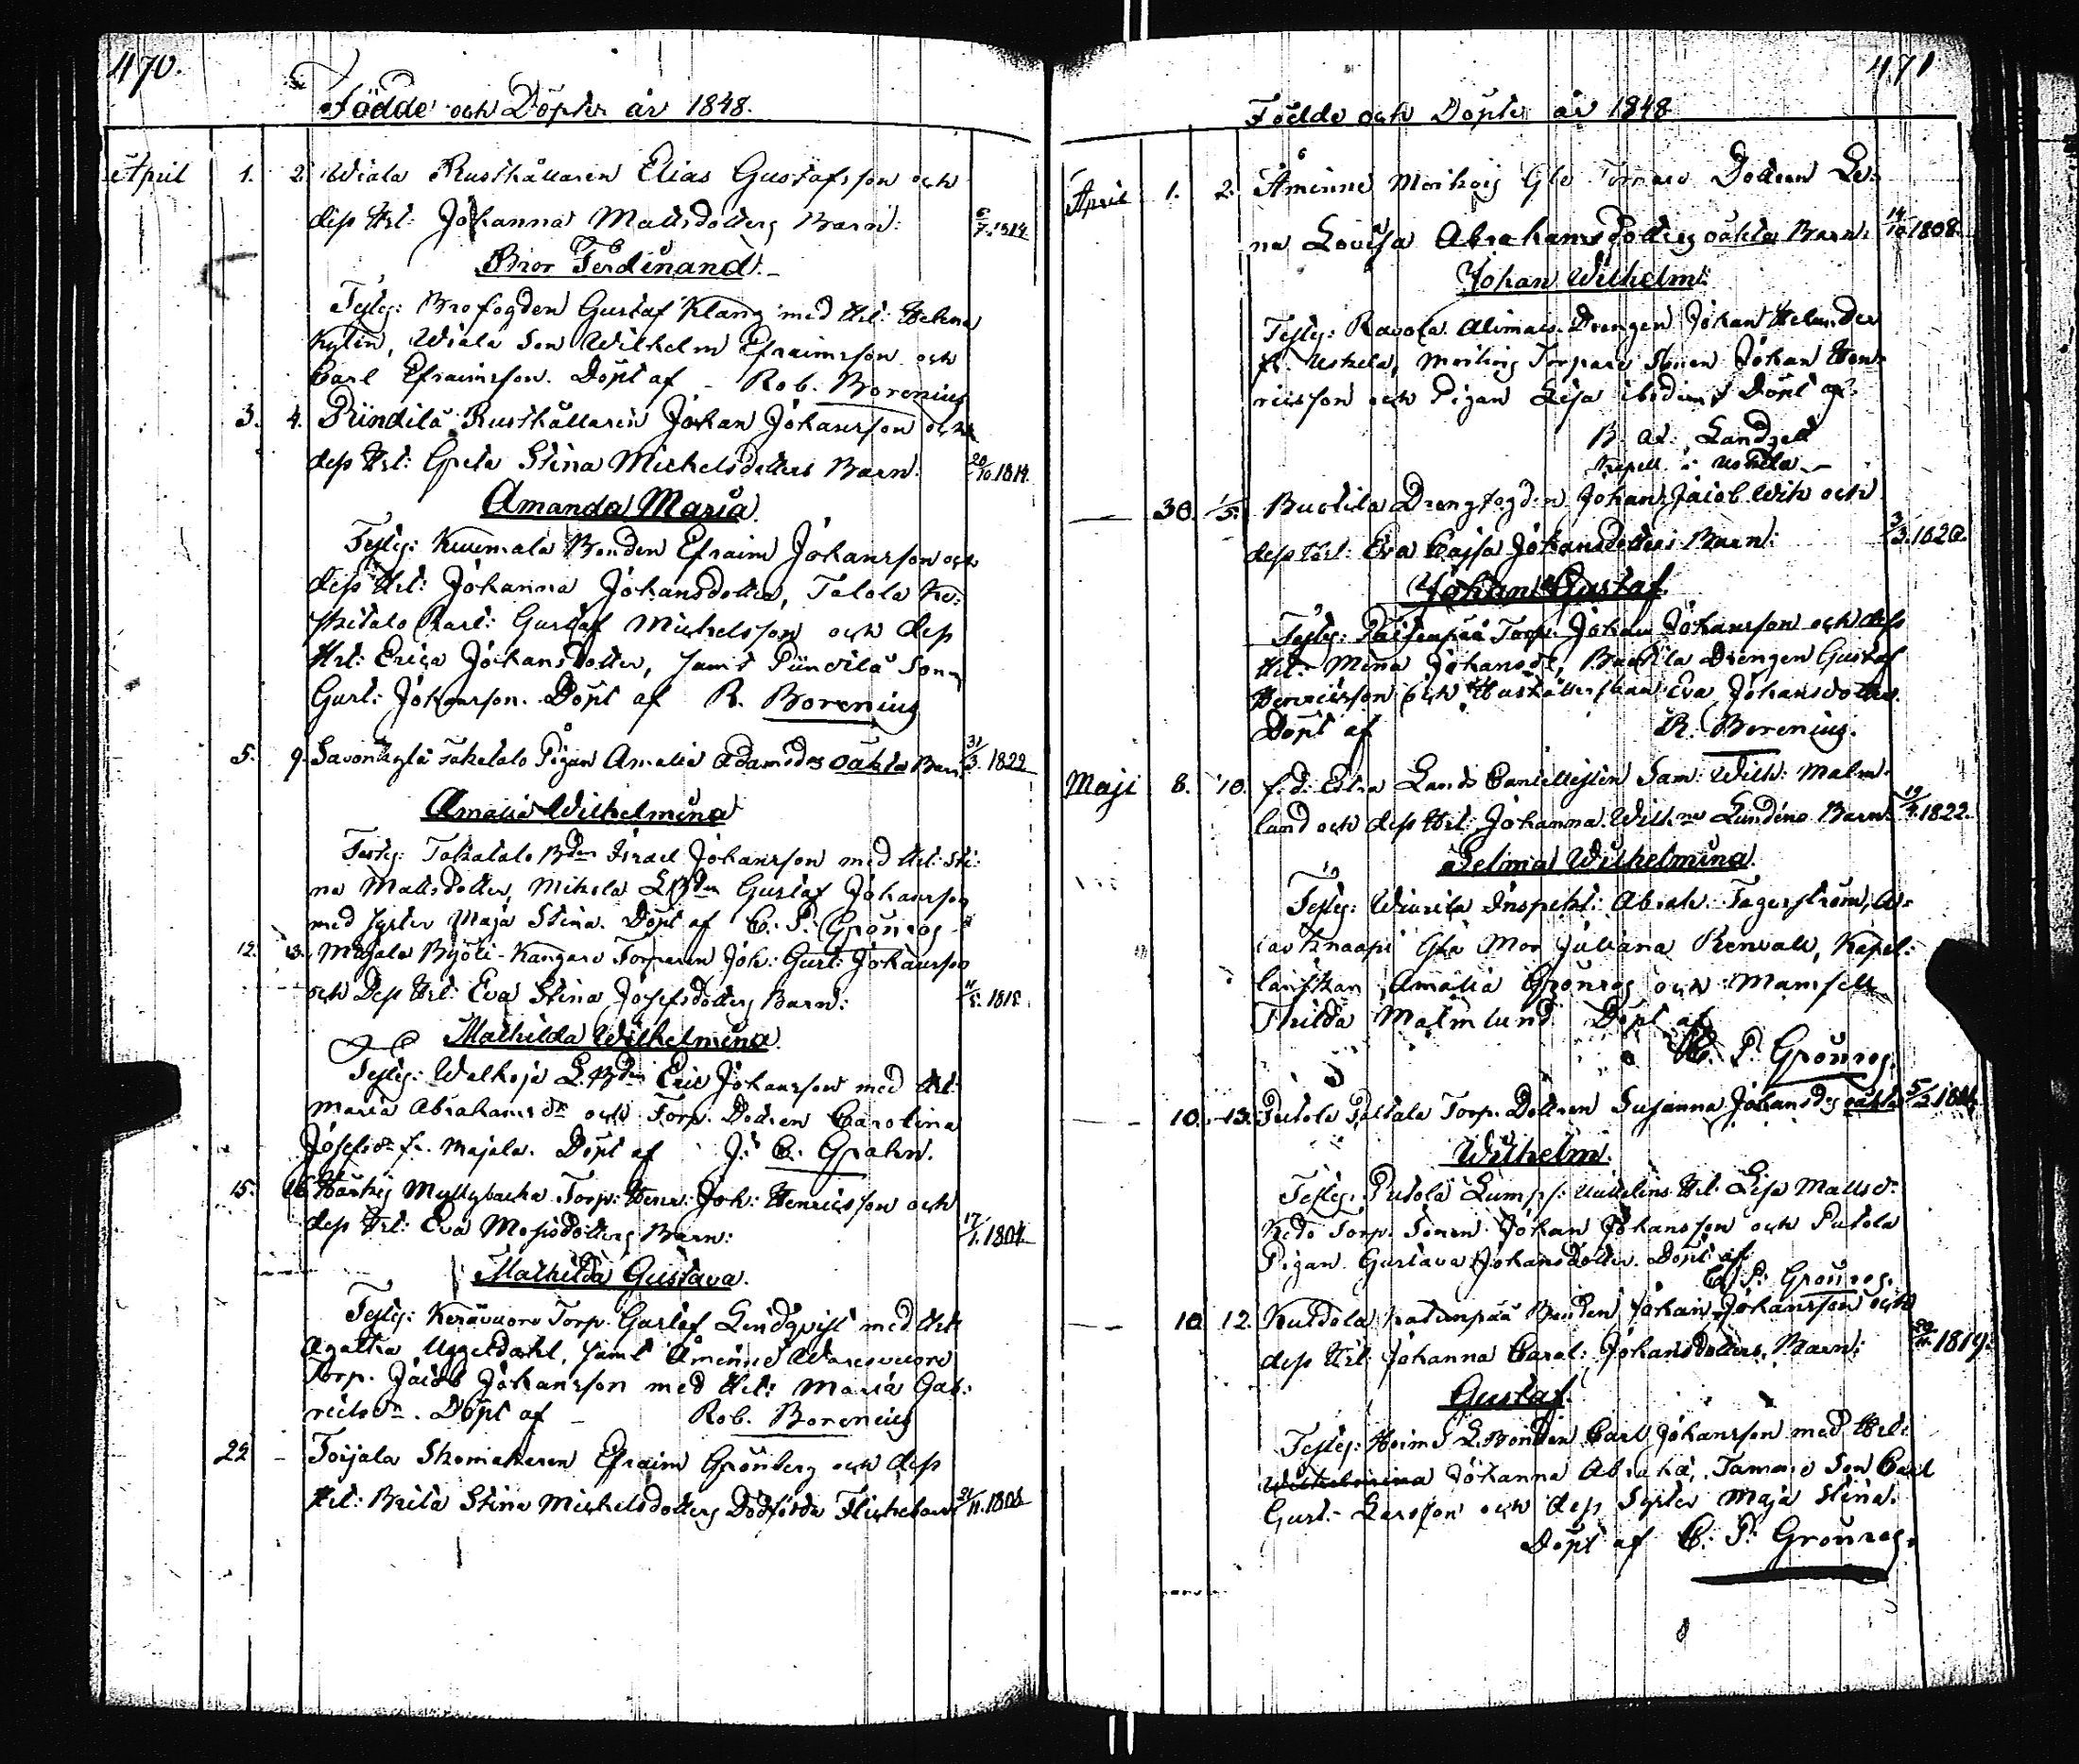 470.
Födde och Döpte år 1848.
April 1. 2. Wiala Rusthållaren Elias Gustafsson och
dess Hst: Johanna Mattsdotters Barn: 1814
Bror Ferdinand.
Testes: Brofogden Gustaf Klang med Hst: Helena
Kylin, Wiala Son Wilhelm Efraimsson och
Carl Efraimsson. Döpt af - Rob. Borenius
3. 4. Pündilä Rusthållaren Johan Johansson och
dess Hst: Greta Stina Michelsdotters Barn. 20/10. 1814.
Amanda Maria.
Testes: Kuumala Bonden Efraim Johansson och
dess Hst: Johanna Johansdotter, Talola
Gustaf Michelsson och dess
Hst: Erica Johansdotter, samt Pündilä Son
Gust: Johansson. Döpt af R. Borenius
5. 9. Takatalo Pigan Amalia Adamsds oäkta Barn 31/3. 1822
Amalia Wilhelmina
Testes: Takatalo Bdn Israel Johansson med Hst: Sti-
na Mattsdotter, Mikola LBdn Gustaf Johansson
med syster Maja Stina. Döpt af C. P. Grönros
12. 13. Majala Torparen Joh: Gust: Johansson
och Dess Hst: Eva Stina Josefsdotters Barn: 1818.
Mathilda Wilhelmina.
Testes: Walhoja L.Bdn Eric Johansson med Hst:
Maria Abrahamsdr och Torp. Dottren Carolina
Josefsdr fr. Majala. Döpt af J. C. Grahn.
15. 16. Myllybacka Torp: Henr: Joh: Henricsson och
dess Hst: Eva Mosisdotters Barn: 17/1. 1804.
Mathilda Gustava.
Testes: Keravuore Torp. Gustaf Lindqvist med Hst:
Agatha Uggeldahl, samt Åminne
Torp. Jacob Johansson med Hst: Maria Gab-
rielsdr. Döpt af - Rob. Borenius
22 - Toijala Skomakaren Efraim Grönberg och dess
Hst: Brita Stina Michelsdotters Dödfödda Flickebarn 21/11. 1808
471
Födde och Döpte år 1848
April 1. 2. Åminne Dottren Le-
na Lovisa Abrahamsdotters oäkta Barn: 14/10 1808.
Johan Wilhelm:
Testes: Ravola Drengen Johan Helander
fr. Uskela, Torpare Sonen Johan Hen-
ricsson och Pigan Lisa ibidem. Döpt af
Kapell. i Uskela.
- 30. Drengfogden Johan Jacob Wik och
dess Hst: Eva Cajsa Johansdotters Barn: 1820.
Johan Gustaf.
Testes: Torp: Johan Johansson och dess
Hst: Mina Johansdr, Drengen Gustaf
Henricsson och Hushållerskan Eva Johansdotter.
Döpt af R. Borenius.
Maji 8. 10. f.d. Extra Lands Cancellisten Sam: Wilh: Malm-
lund och dess Hst: Johanna Wilhna Lundéns Barn. 1822.
Selima Wilhelmina.
Testes: Inspekt: Abrah. Fagerström,
Mor Juliana Renvall, Kapel-
lanskan Amalia Grönros och Mamsell
Thilda Malmlund Döpt af
C. P. Grönros.
- 10. 13. Putola Torp. Dottren Susanna Johansds oäkta
Wilhelm.
Testes. Putola Hst: Lisa Mattsdr.
Torp. Sonen Johan Johansson och Putola
Pigan Gustava Johansdotter. Döpt af
C. P. Grönros.
- 10. 12. Bonden Johan Johansson och
dess Hst: Johanna Carol: Johansdotters Barn: 1819.
Gustaf.
Testes: L.Bonden Carl Johansson med Hst:
Wilhelmina Johanna Son Carl
Gust: Larsson och dess Syster Maja Stina.
Döpt af C. P. Grönros.